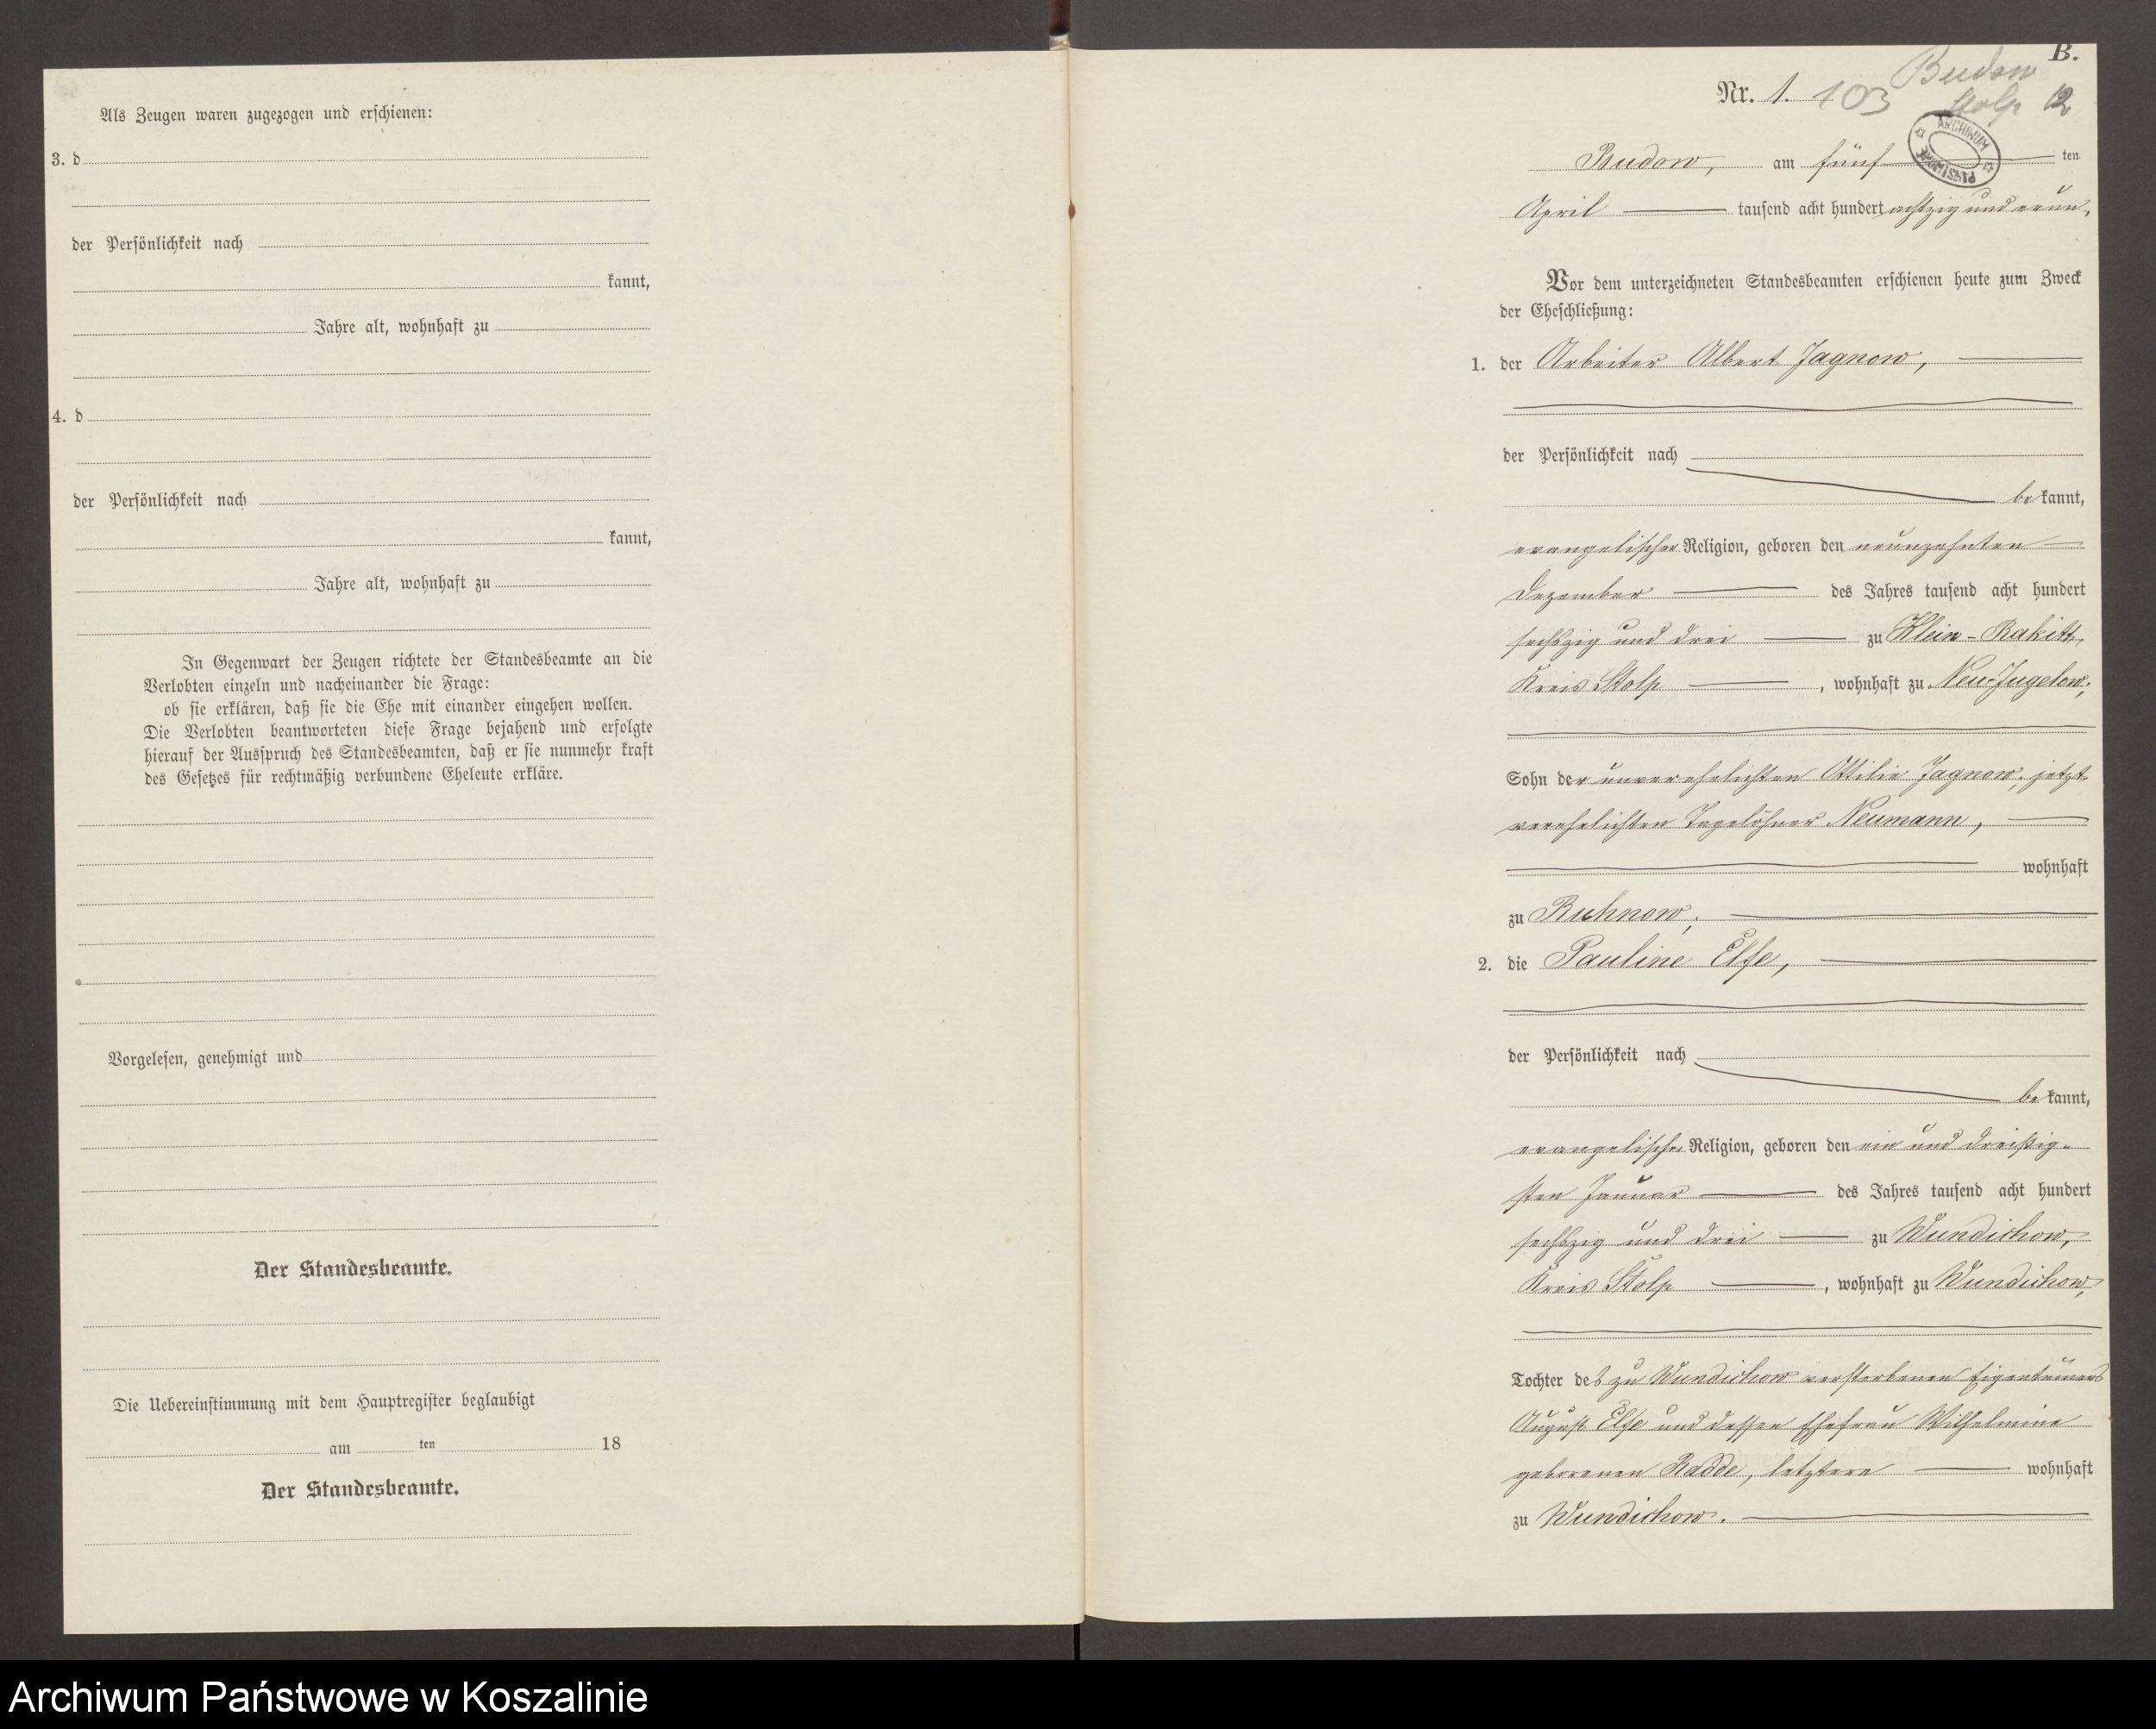 Als Zeugen waren zugezogen und erschienen:
3. d
der Persönlichkeit nach
kannt,
Jahre alt, wohnhaft zu
4. d
der Persönlichkeit nach
kannt,
Jahre alt, wohnhaft zu
In Gegenwart der Zeugen richtete der Standesbeamte an die
Verlobten einzeln und nacheinander die Frage:
ob sie erklären, daß sie die Ehe mit einander eingehen wollen.
Die Verlobten beantworteten diese Frage bejahend und erfolgte
hierauf der Ausspruch des Standesbeamten, daß er sie nunmehr kraft
des Gesetzes für rechtmäßig verbundene Eheleute erkläre.
Vorgelesen, genehmigt und
Der Standesbeamte.
Die Uebereinstimmung mit dem Hauptregister beglaubigt
am ten 18
Der Standesbeamte.
B.
Budow
Nr. 1. 103 Stolp 12
ARCHIWUM PAŃSTWOWE
Budow, am fünf ten
April tausend acht hundert achtzig und neun.
Vor dem unterzeichneten Standesbeamten erschienen heute zum Zweck
der Eheschließung:
1. der Arbeiter Albert Jagnow,
der Persönlichkeit nach
bekannt,
evangelischer Religion, geboren den neunzehnten
Dezember des Jahres tausend acht hundert
sechszig und drei zu Klein-Rakitt,
Kreis Stolp, wohnhaft zu Neu-Jugelow,
Sohn der unverehelichten Ottilie Jagnow, jetzt
verehelichten Tagelöhner Neumann,
wohnhaft
zu Ruhnow,
2. die Pauline Else,
der Persönlichkeit nach
bekannt,
evangelischer Religion, geboren den ein und dreißig-
sten Januar des Jahres tausend acht hundert
sechszig und drei zu Wundichow,
Kreis Stolp, wohnhaft zu Wundichow,
Tochter des zu Wundichow verstorbenen Eigentümers
August Else und dessen Ehefrau Wilhelmine
geborenen Radde, letztere wohnhaft
zu Wundichow.
Archiwum Państwowe w Koszalinie